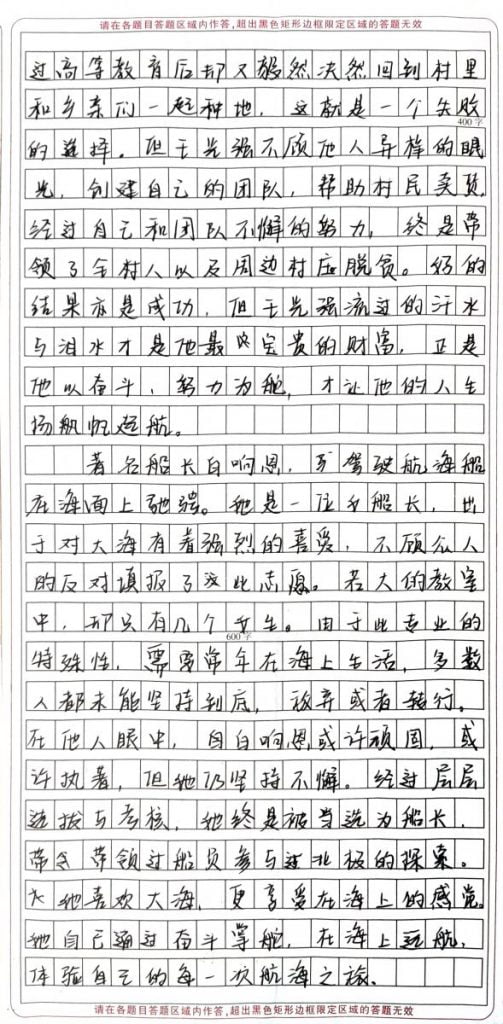 请在各题目答题区域内作答,超出黑色矩形边框限定区域的答题无效
过高等教育后却又毅然决然回到村里
和乡亲们一起种地，这就是一个失败
400字
的选择。但王先强不顾他人异样的眼
光，创建自己的团队，帮助村民卖货，
经过自己和团队不懈的努力，终是带
领了全村人以及周边村庄脱贫。的
结果亦是成功，但王先强流过的汗水
与泪水才是他最宝贵的财富，正是
他以奋斗、努力为舵，才让他的人生
扬帆起航。
著名船长白响恩，驾驶航海船
在海面上驰骋。她是一位女船长，出
于对大海有着强烈的喜爱，不顾众人
的反对填报了这此志愿。若大的教室
中，却只有几个女生。由于此专业的
600字
特殊性，需要常年在海上生活，多数
人都未能坚持到底，放弃或者转行。
在他人眼中，白响恩或许顽固，或
许执着，但她仍坚持不懈。经过层层
选拔与考核，她终是被当选为船长，
带领过船员参与过北极的探索。
她喜欢大海，更享受在海上的感觉。
她自己通过奋斗掌舵，在海上远航，
体验自己的每一次航海之旅。
请在各题目答题区域内作答,超出黑色矩形边框限定区域的答题无效